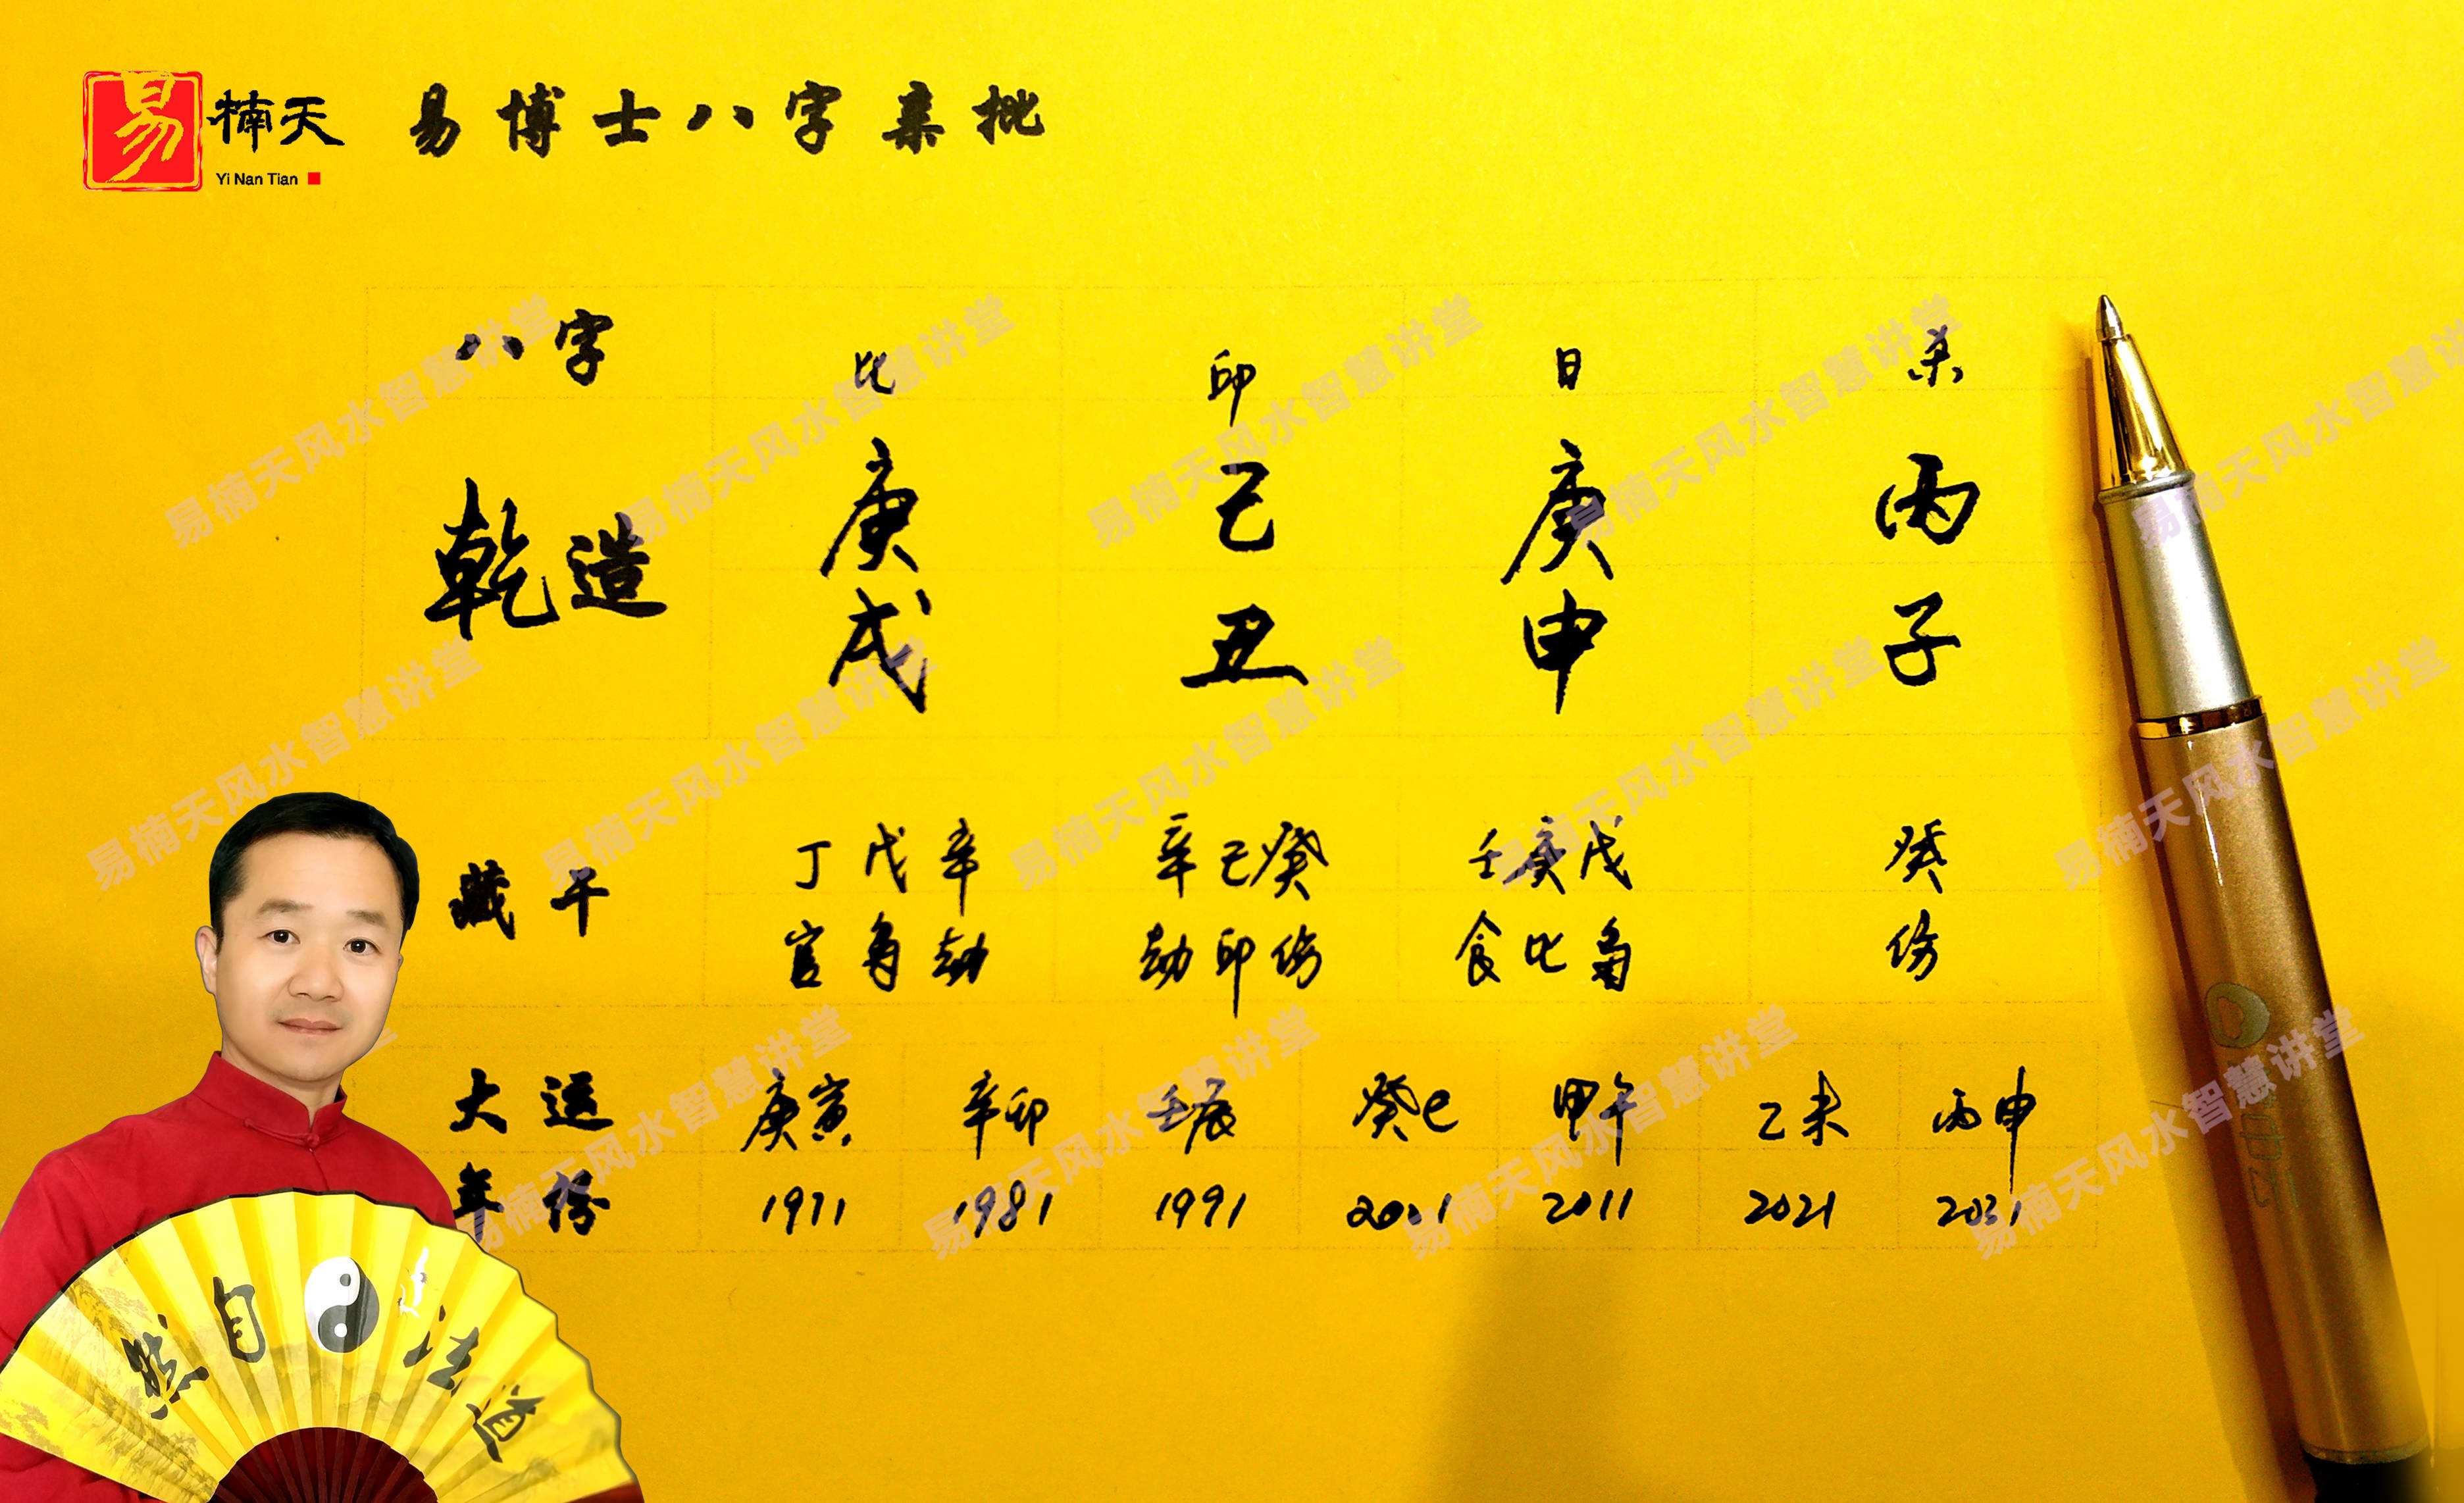 易楠天 易博士八字亲批
Yi Nan Tian
八字 比 印 日 杀
乾造 庚 己 庚 丙
戌 丑 申 子
藏干 丁戊辛 辛己癸 壬庚戊 癸
官枭劫 劫印伤 食比枭 伤
大运 庚寅 辛卯 壬辰 癸巳 甲午 乙未 丙申
年份 1971 1981 1991 2001 2011 2021 2031
然自法道
易楠天风水智慧讲堂